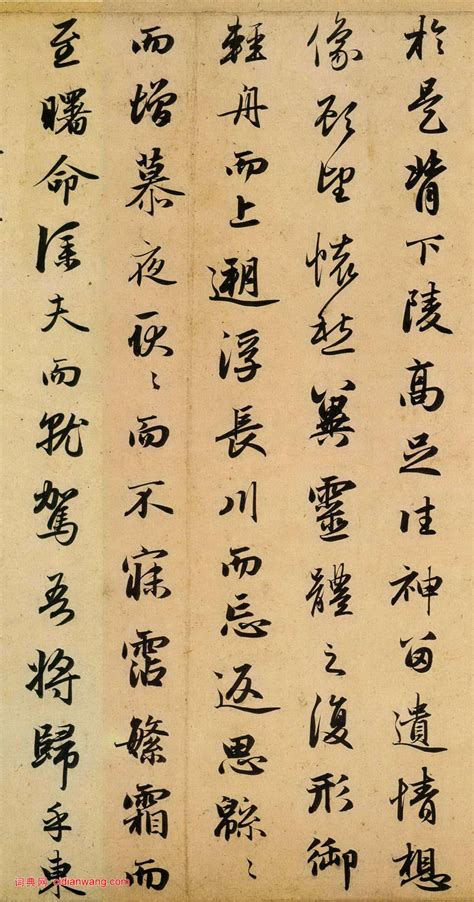 於是背下陵高足往神留遺情想
像顧望懷愁冀靈體之復形御
輕舟而上遡浮長川而忘返思緜〻
而增慕夜耿〻而不寐霑繁霜而
至曙命僕夫而就駕吾將歸乎東
词典网 cidianwang.com